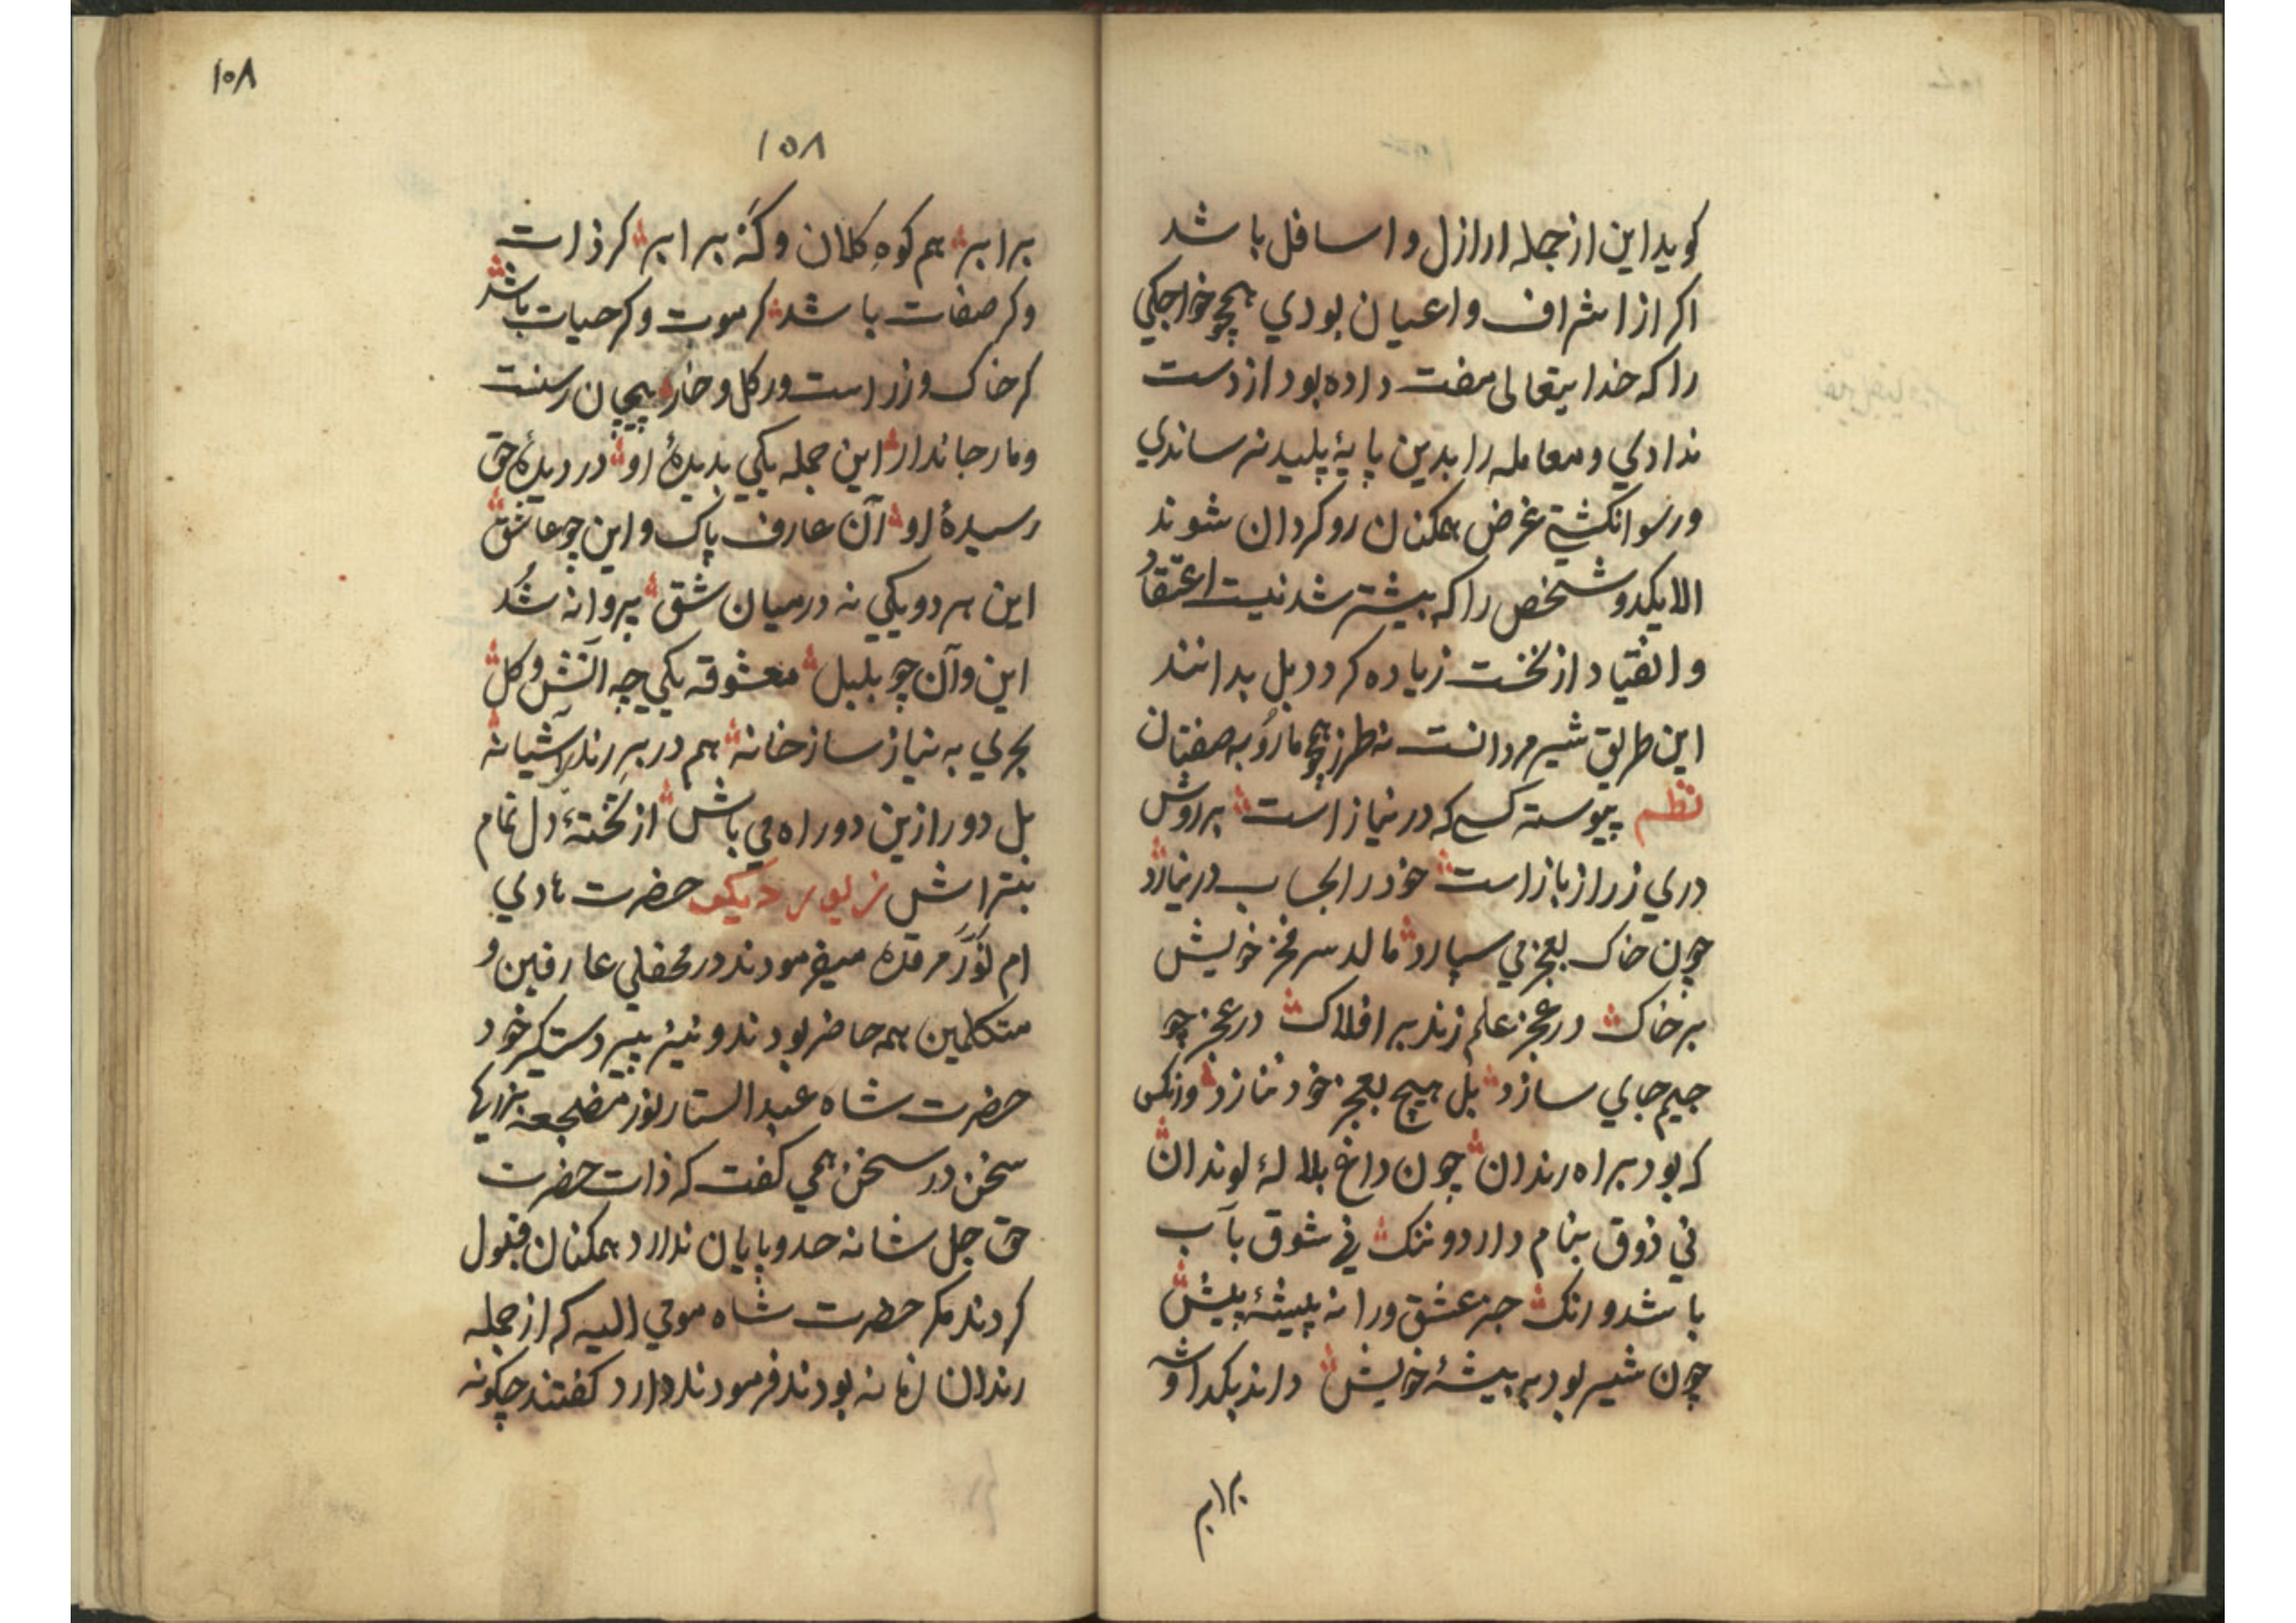 كويد اين از جمله ارازل و اسافل باشد
اكر از اشراف و اعيان بودي همچو خواجكي
را كه خدا يتعالى مفت داده بود از دست
ندادي و معامله را بدين پايۀ پليد نرساندي
و رسوا نكشتي غرض همكنان رو كردان شوند
الا يكدو شخص را كه بيشتر شدنيست اعتقاد
و انقياد از نخست زياده كردد بل بدانند
اين طريق شير مردانست نه طرز همچو ما روبه صفتان
نظم پيوسته كسي كه در نياز است بر روش
دري ز راز باز است خود را بجاب در نيارد
چون خاك بعجز مي سپارد مالد سر فخر خويش
بر خاك در عجز علم زند بر افلاك در عجز چو
جيم جاي سازد بل هيچ بعجز خود ننازد وانكس
كه بود براه رندان چون داغ بلالۀ لوندان
ني ذوق بنام دارد و ننك ني شوق بآب
باشد و رنك جز عشق ورا نه پيشۀ پيش
چون شير بود به بيشۀ خويش داند يكد او
برابر
١٠٨
١٠٨
برابر هم كوه كلان و كه برابر كر ذات
و كر صفات باشد كر موت و كر حيات باشد
كر خاك و زر است ور كل و خار پيچان رسنت
و مار جاندار اين جمله يكي بديدۀ او در ديدۀ حق
رسيدۀ او آن عارف پاك و اين چو عاشق
اين هر دو يكي نه درميان شق پروانه شد
اين و آن چو بلبل معشوقه يكي چه اتش و كل
بحري به نياز ساز خانه هم در بر رند آشيانه
بل دور ازين دو راه مي باش از تختۀ دل تمام
بتراش زيور ديكر حضرت هادي
ام نور مرقده ميفرمودند در محفلي عارفين و
متكلمين همه حاضر بودند و نيز پير دستكير خود
حضرت شاه عبد الستار نور مضجعه
سخن در سخن همي كفت كه ذات حضرت
حق جل شانه حد و پايان ندارد همكنان قبول
كردند مكر حضرت شاه مومي اليه كه از جمله
رندان زمانه بودند فرمودند دارد كفتند چكونه